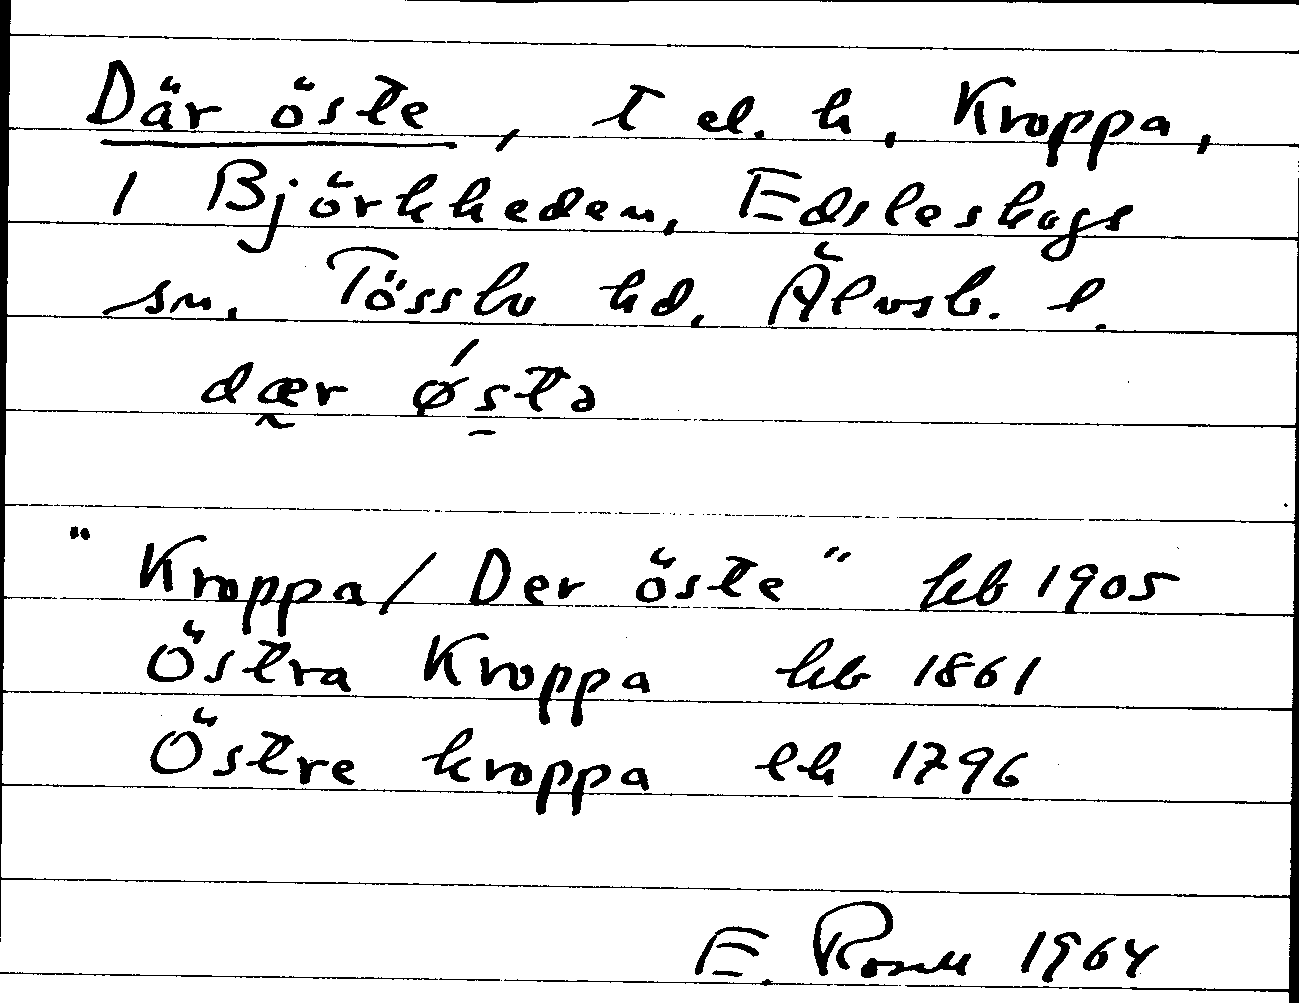 Där öste, t el. h, Kroppa,
1 Björkheden, Edsleskogs
sn. Tössbo hd. Älvsb. l.
dær ǿstə
"Kroppa / Der öste" hb 1905
Östra Kroppa hb 1861
Östre kroppa lh 1796
E. 1964